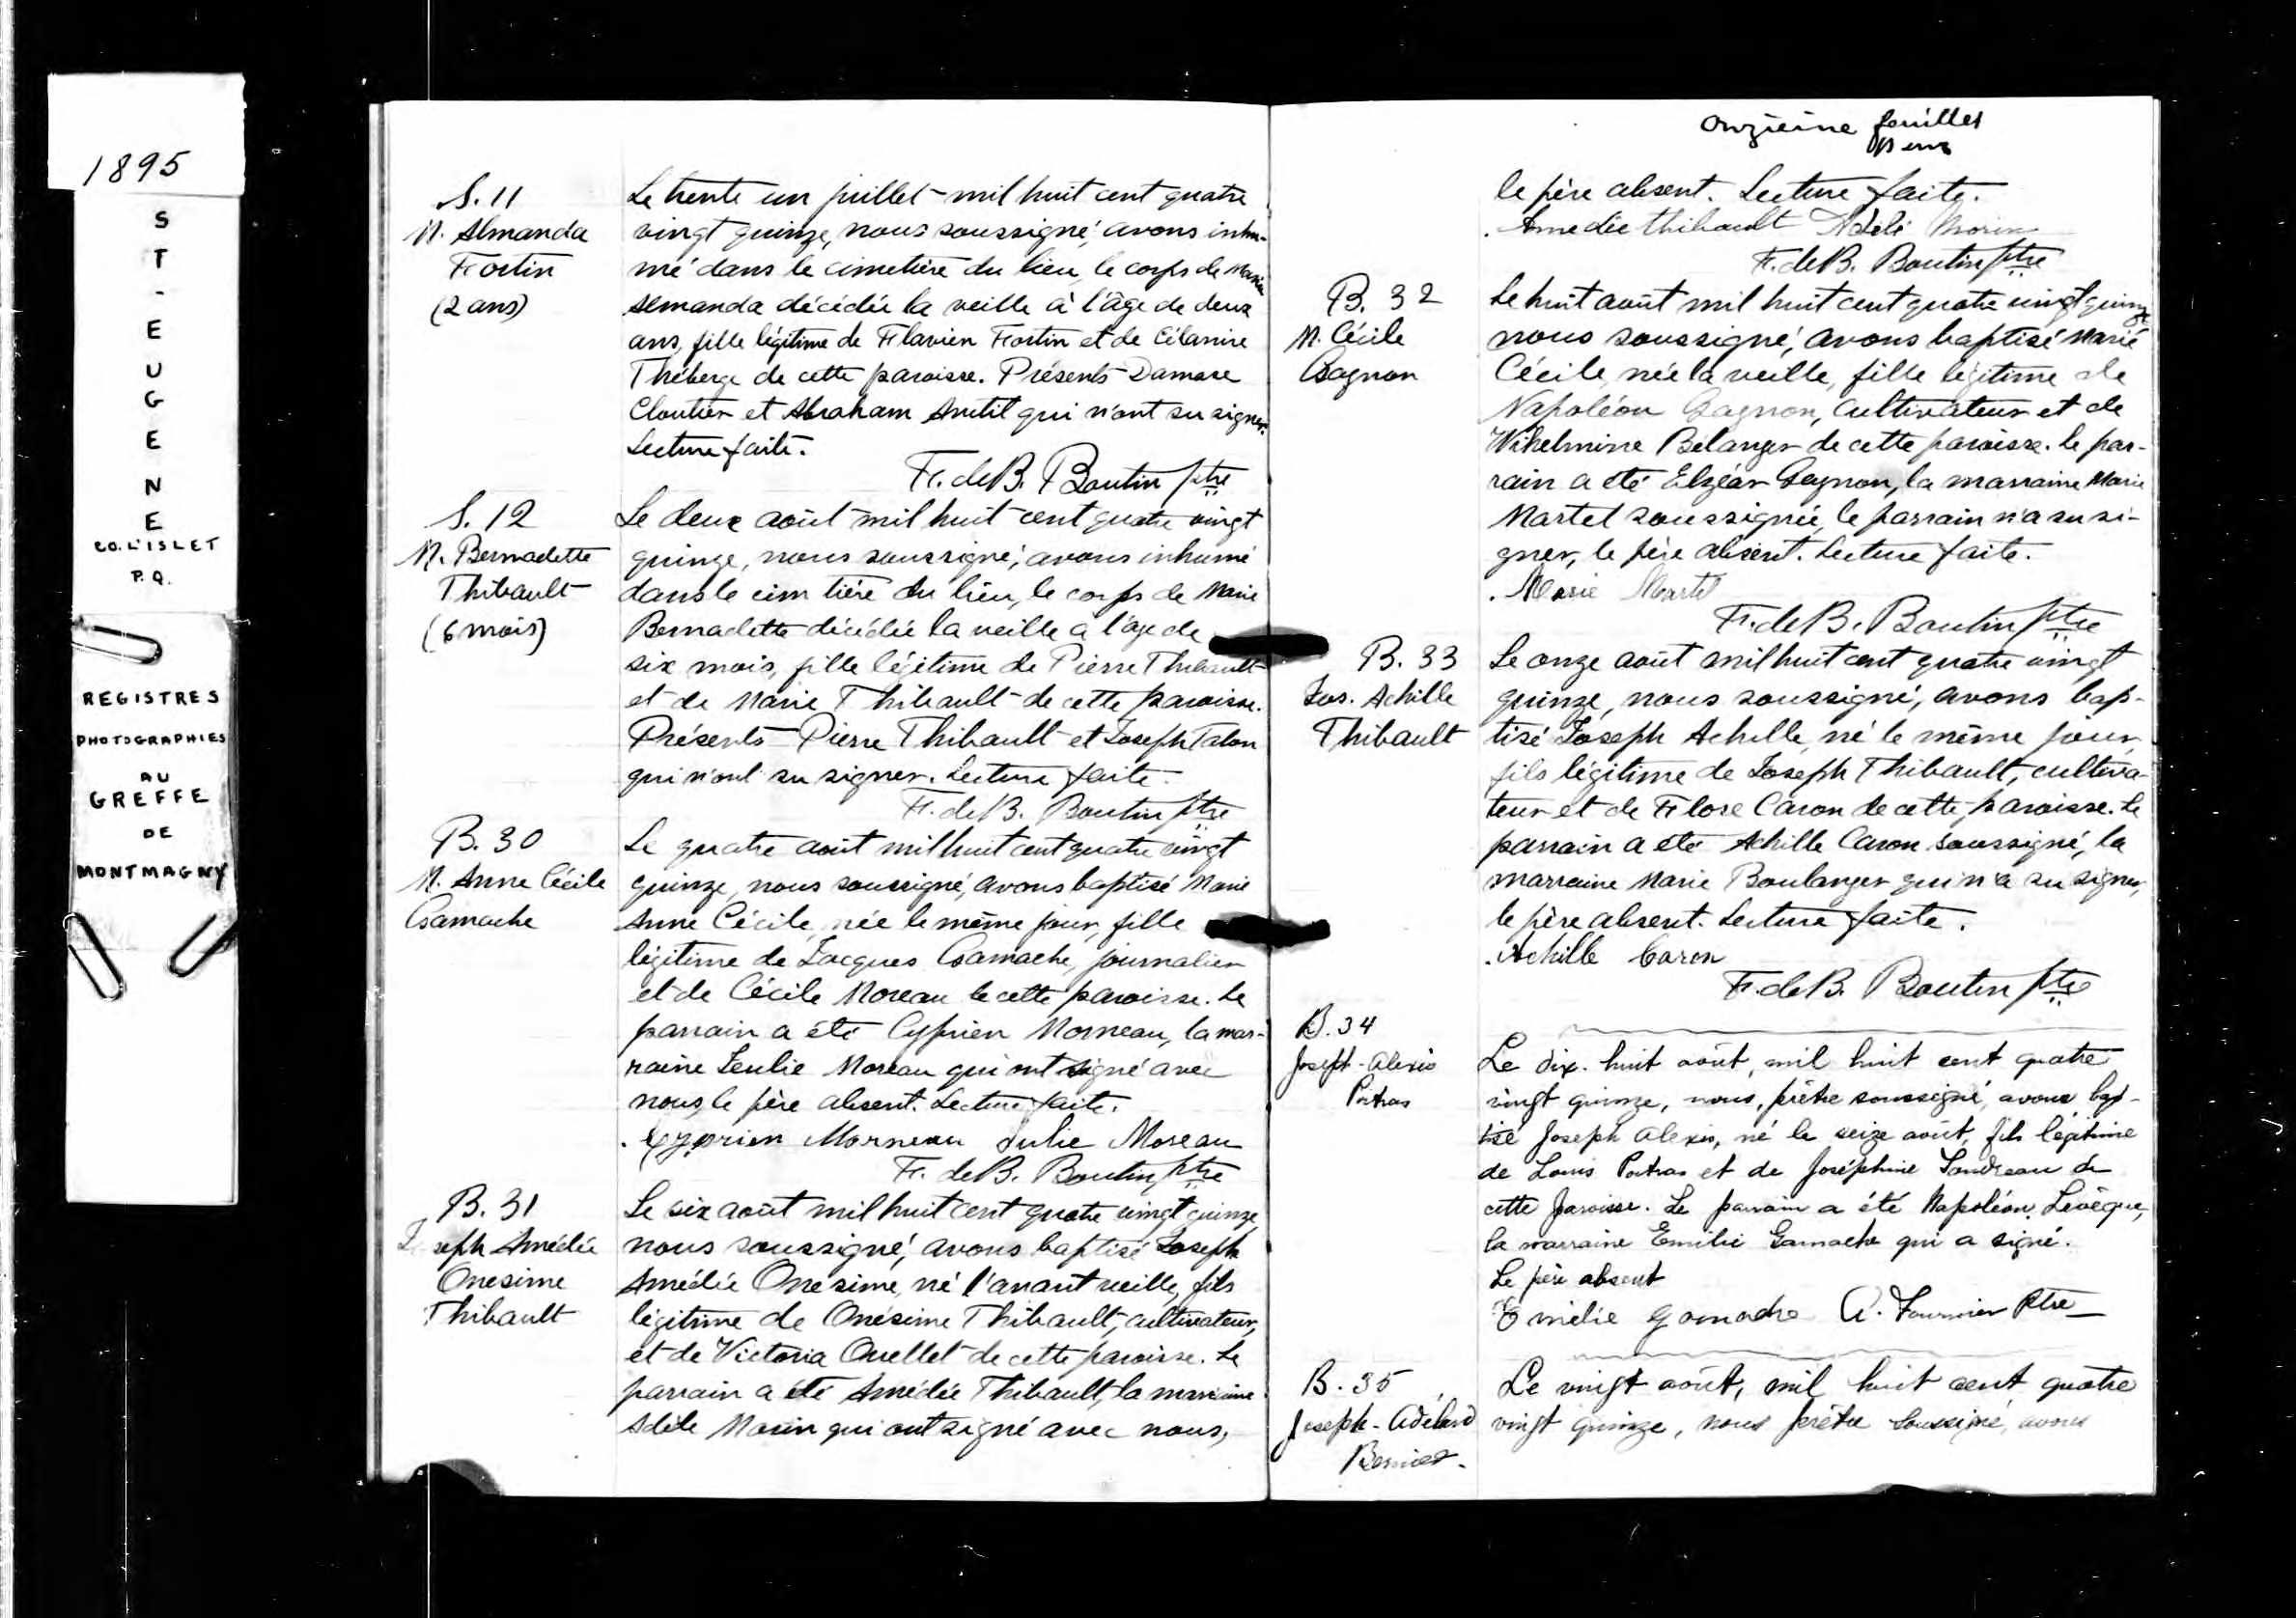 1895
S
T
-
E
U
G
E
N
E
CO. L'ISLET
P.Q.
REGISTRES
PHOTOGRAPHIES
AU
GREFFE
DE
MONTMAGNY
S. 11
M. Almanda
Fortin
(2 ans)
Le trente un juillet mil huit cent quatre
vingt quinze, nous soussigné, avons inhu-
mé dans le cimetière du lieu, le corps de Marie
Almanda décédée la veille à l'âge de deux
ans, fille légitime de Flavien Fortin et de Célanire
Théberge de cette paroisse. Présents Damase
Cloutier et Abraham Anctil qui n'ont su signer.
Lecture faite.
F. de B. Boutin ptre
S. 12
M. Bernadette
Thibault
(6 mois)
Le deux août mil huit cent quatre vingt
quinze, nous soussigné, avons inhumé
dans le cim tière du lieu, le corps de Marie
Bernadette décédée la veille a l'age de
six mois, fille légitime de Pierre Thibault
et de Marie Thibault de cette paroisse.
Présents Pierre Thibault et Joseph Talon
qui n'ont su signer. Lecture faite.
F. de B. Boutin ptre
B. 30
M. Anne Cécile
Gamache
Le quatre août mil huit cent quatre vingt
quinze, nous soussigné, avons baptisé Marie
Anne Cécile, née le même jour, fille
légitime de Jacques Gamache, journalier
et de Cécile Moreau de cette paroisse. Le
parrain a été Cyprien Morneau, la mar-
raine Julie Moreau qui ont signé avec
nous, le père absent. Lecture faite.
. Cyprien Morneau Julie Moreau
F. de B. Boutin ptre
B. 31
Joseph Amédée
Onesime
Thibault
Le six août mil huit cent quatre vingt quinze,
nous soussigné, avons baptisé Joseph
Amédée Onesime, né l'avant veille, fils
légitime de Onésime Thibault, cultivateur,
et de Victoria Ouellet de cette paroisse. Le
parrain a été Amédée Thibault, la marraine
Adèle Morin qui ont signé avec nous,
Onzième feuillet
le père absent. Lecture faite.
. Amedée Thibault Adèle Morin
F. de B. Boutin ptre
B. 32
M. Cécile
Gagnon
Le huit août mil huit cent quatre vingt quinze
nous soussigné, avons baptisé Marie
Cécile, née la veille, fille légitime de
Napoléon Gagnon, cultivateur et de
Wilhelmine Bélanger de cette paroisse. Le par-
rain a été Elzéar Gagnon, la marraine Marie
Martel soussignée, le parrain n'a su si-
gner, le père absent. Lecture faite.
. Marie Martel
F. de B. Boutin ptre
B. 33
Jos. Achille
Thibault
Le onze août mil huit cent quatre vingt
quinze, nous soussigné, avons bap-
tisé Joseph Achille, né le même jour,
fils légitime de Joseph Thibault, cultiva-
teur et de Flore Caron de cette paroisse. Le
parrain a été Achille Caron soussigné, la
marraine Marie Boulanger qui n'a su signer,
le père absent. Lecture faite.
. Achille Caron
F. de B. Boutin ptre
B. 34
Joseph-Alexis
Poitras
Le dix-huit août, mil huit cent quatre
vingt quinze, nous, prêtre soussigné, avons bap-
tisé Joseph Alexis, né le seize août, fils légitime
de Louis Poitras et de Joséphine de
cette paroisse. Le parrain a été Napoléon Levêque,
la marraine Emilie Gamache qui a signé.
Le père absent
Emélie Gamache A. Fournier Ptre
B. 35
Joseph-Adélard
Bernier.
Le vingt août, mil huit cent quatre
vingt quinze, nous prêtre soussigné, avons